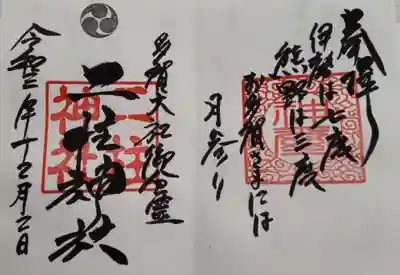 奉拝
伊勢は七度
熊野は三度
お多賀さまには
月参り
多賀大社御分霊
二柱神社
二柱
神社
令和二年十二月二日